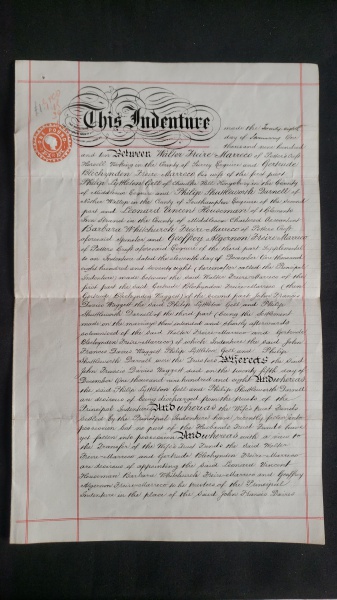 This Indenture made the Twenty eighth
day of January One
thousand nine hundred
and ten Between Walter Freire-Marreco of Potter's Croft
Horsell Woking in the County of Surrey Esquire and Gertrude
Blechynden Freire-Marreco his wife of the first part
Philip Lyttleton Gell of Hill in the County
of Esquire and Philip Shuttleworth Darnell of
Nether Wallop in the County of Southampton Esquire of the second
part and Leonard Vincent Houseman of 1 Clements
Inn Strand in the County of Middlesex Chartered Accountant
Barbara Whitchurch Freire-Marreco of Potters Croft
aforesaid Spinster and Geoffrey Algernon Freire-Marreco
of Potters Croft aforesaid Esquire of the third part Supplemental
to an Indenture dated the Seventh day of December One thousand
eight hundred and seventy eight (hereinafter called the Principal
Indenture) made between the said Walter Freire-Marreco of the
first part the said Gertrude Blechynden Freire-Marreco (then
Gertrude Blechynden ) of the second part John Francis
Davies the said Philip Lyttleton Gell and Philip
Shuttleworth Darnell of the third part (being the Settlement
made on the marriage then intended and shortly afterwards
solemnized of the said Walter Freire-Marreco and Gertrude
Blechynden Freire-Marreco) of which Indenture the said John
Francis Davies Philip Lyttleton Gell and Philip
Shuttleworth Darnell were the Trustees Whereas the said
John Francis Davies died on the twenty fifth day of
December One thousand nine hundred and eight And whereas
the said Philip Lyttleton Gell and Philip Shuttleworth Darnell
are desirous of being discharged from the trusts of the
Principal Indenture And whereas the Wife's Trust Funds
settled by the Principal Indenture have already fallen into
possession but no part of the Husband's Trust Funds have
yet fallen into possession And whereas with a view to
the Transfer of the Wife's Trust Funds the said Walter
Freire-Marreco and Gertrude Blechynden Freire-Marreco
are desirous of appointing the said Leonard Vincent
Houseman Barbara Whitchurch Freire-Marreco and Geoffrey
Algernon Freire-Marreco to be trustees of the Principal
Indenture in the place of the said John Francis Davies